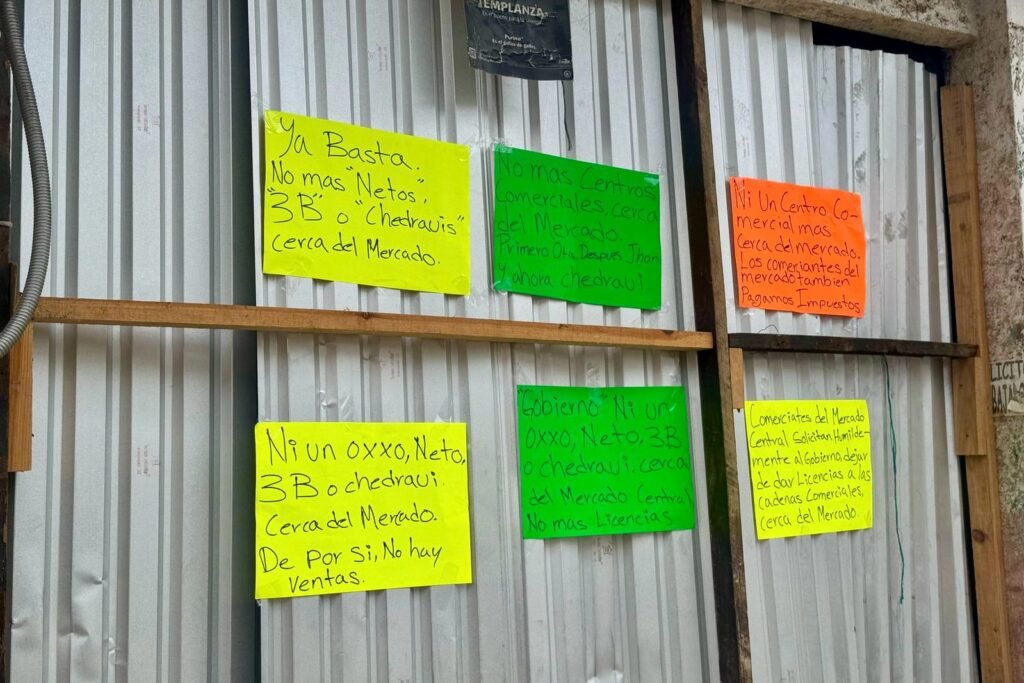 TEMPLANZA
Ya Basta.
No mas "Netos",
"3B" o "Chedrauis"
cerca del Mercado.
No mas Centros
Comerciales, cerca
del Mercado.
Primero Otis. Despues, Jhon
Y ahora chedraui
Ni Un Centro Co-
mercial mas
Cerca del mercado.
Los comeriantes del
mercado tambien
Pagamos Impuestos
Ni un oxxo, Neto,
3B o chedraui.
Cerca del Mercado.
De por si, No hay
ventas.
"Gobierno" Ni un
oxxo, Neto, 3B
o chedraui. cerca
del Mercado Central
No mas Licencias
Comerciates del Mercado
Central Solicitan Humilde-
mente al Gobierno, dejar
de dar Licencias a las
cadenas Comerciales,
cerca del Mercado.